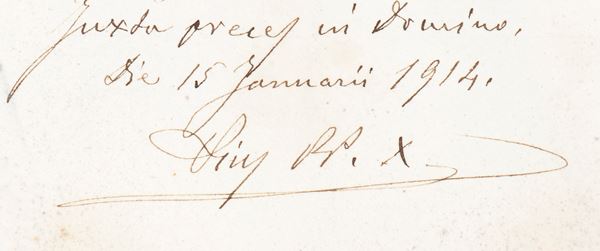 Juxta preces in Domino.
Die 15 Januarii 1914.
Pius PP. X